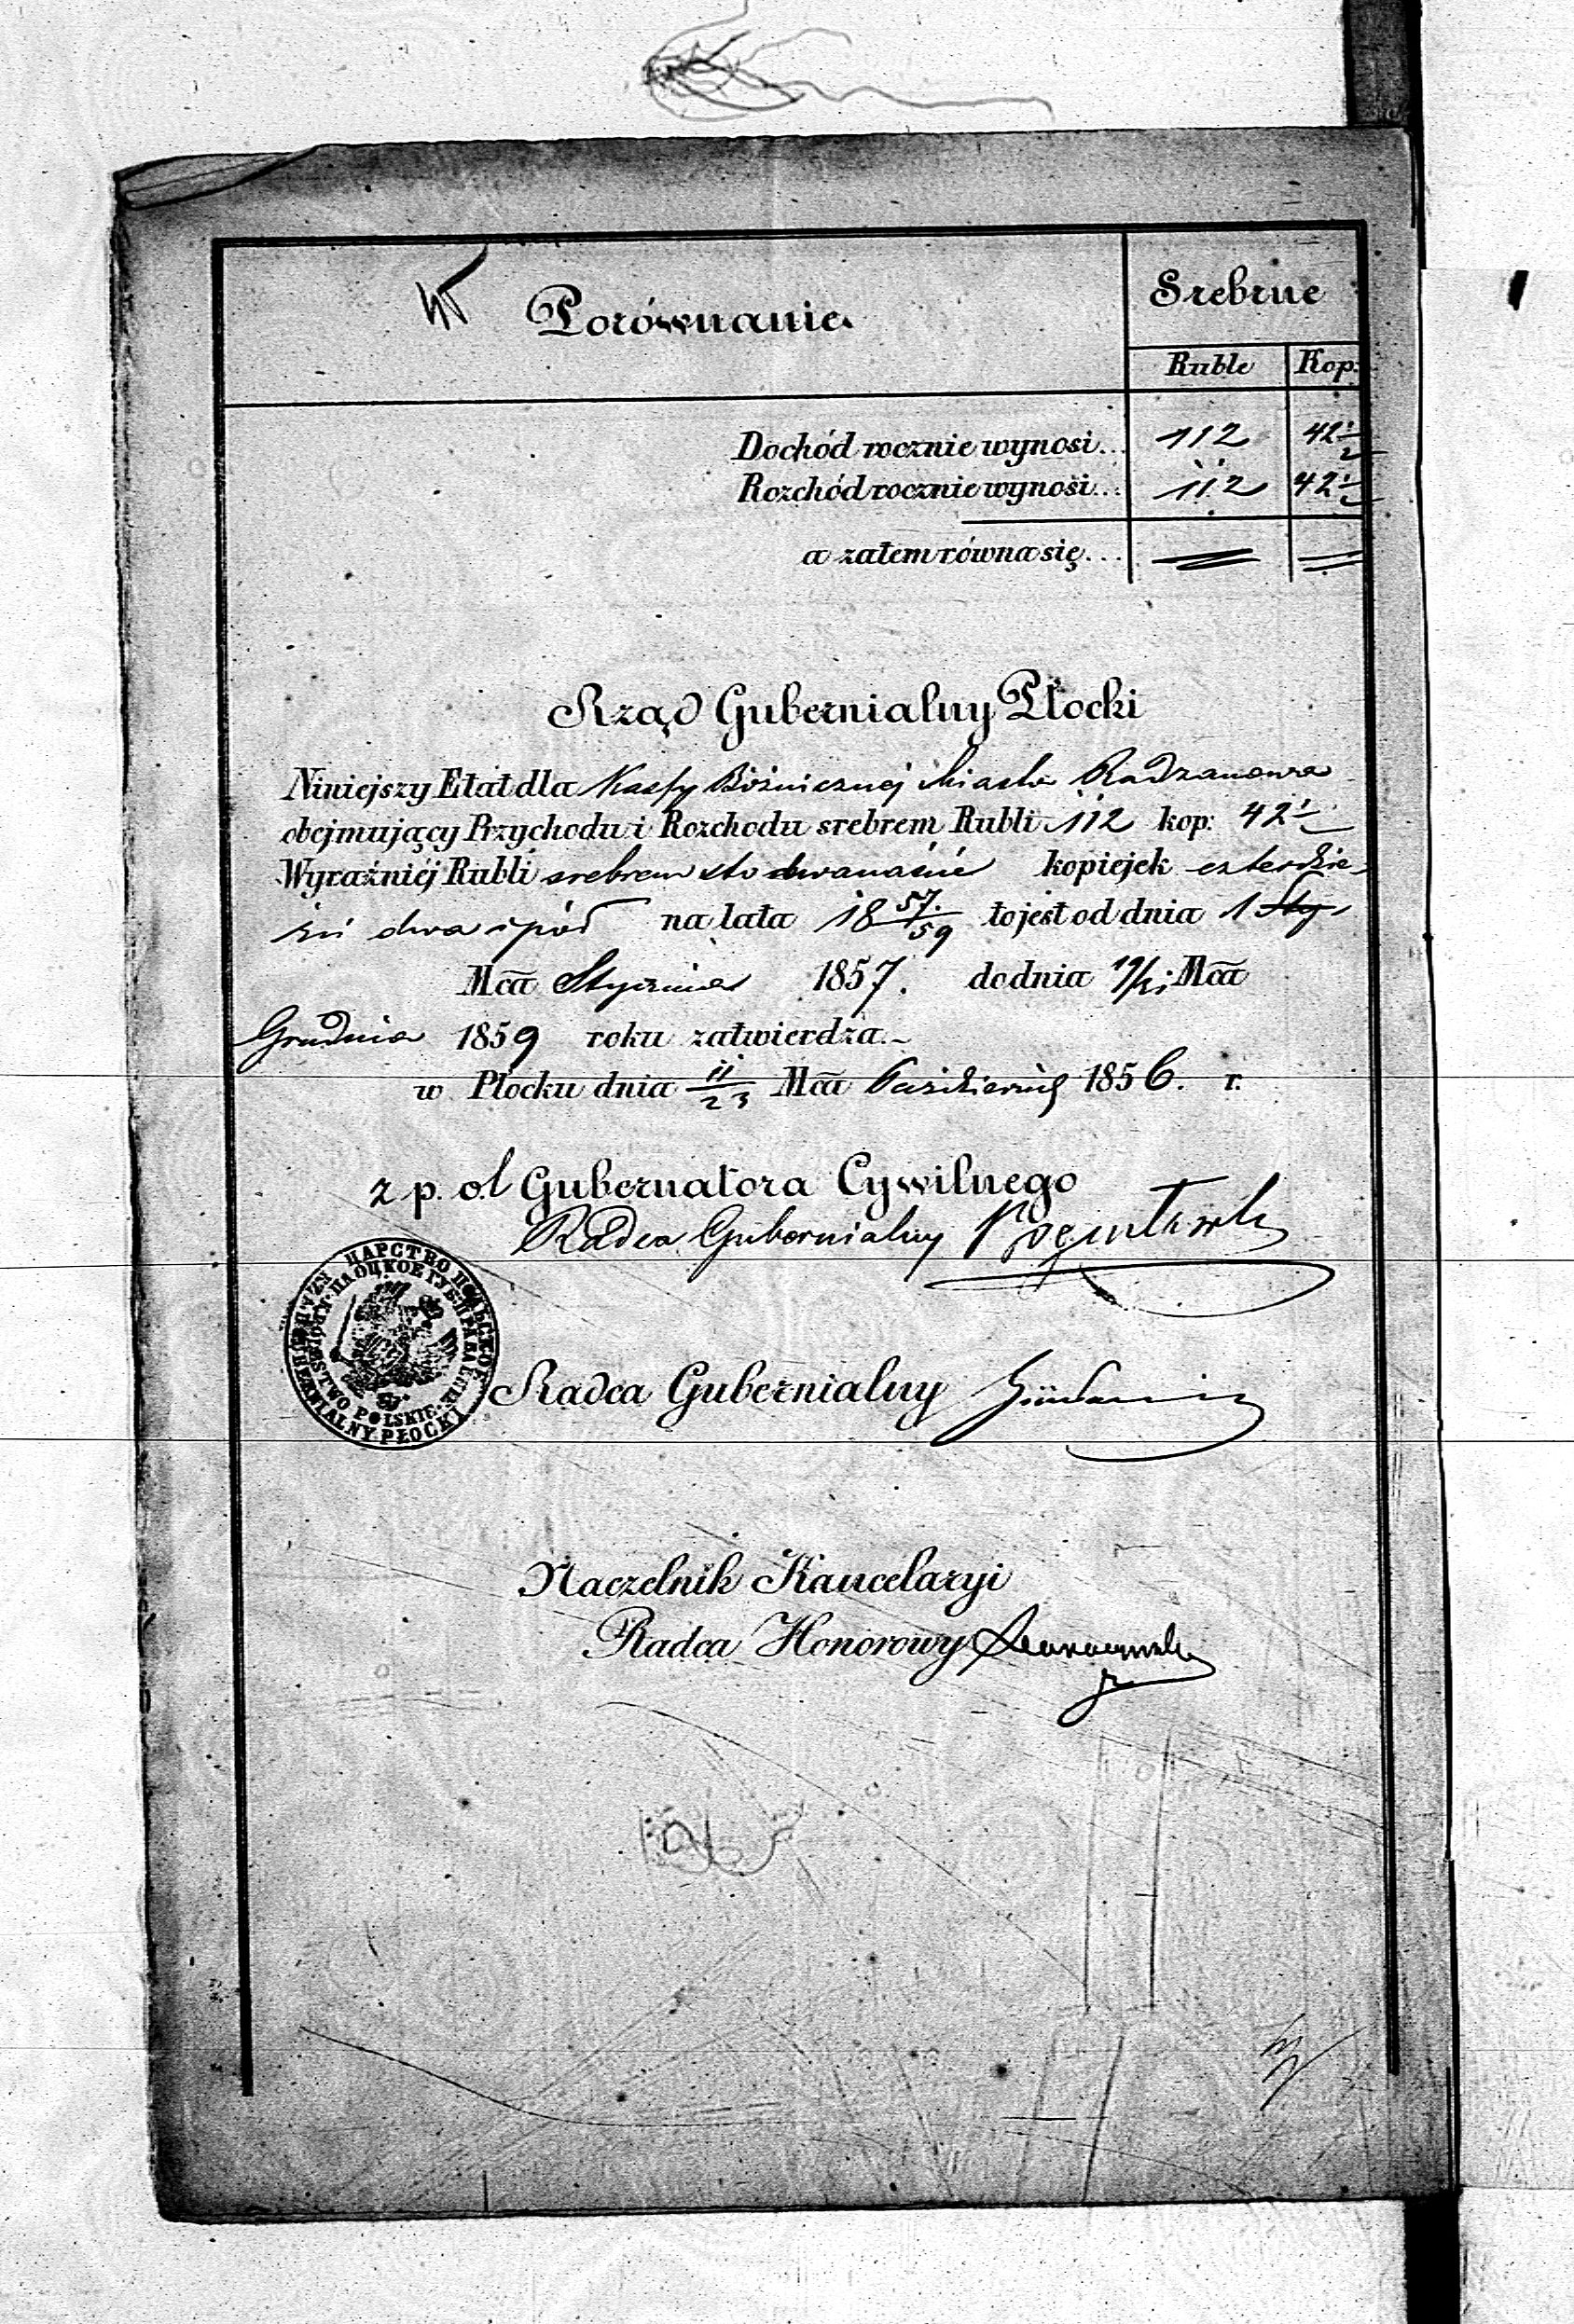 Porównanie
Srebrne
Ruble Kop:
Dochód rocznie wynosi... 112 42½
Rozchód rocznie wynosi... 112 42½
a zatem równa się...
Rząd Gubernialny Płocki
Niniejszy Etat dla Kassy Bóżnicznej Miasta Radzanowa
obejmujący Przychodu i Rozchodu srebrem Rubli 112 kop: 42½
Wyraźniéj Rubli srebrem sto dwanaście kopiejek czterdzie-
ści dwa i pół na lata 18 57/59 to jest od dnia 1
Mca Stycznia 1857. do dnia Mca
Grudnia 1859 roku zatwierdza.~
w Płocku dnia 11/23 Mca Październik 1856. r.
z p. o. Gubernatora Cywilnego
Radca Gubernialny
ЦАРСТВО ПОЛЬСКОЕ ПЛОЦКОЕ ГУБ. ПРАВЛЕНІЕ
KRÓLESTWO POLSKIE. RZĄD GUBERNIALNY PŁOCKI
Radca Gubernialny
Naczelnik Kancelaryi
Radca Honorowy